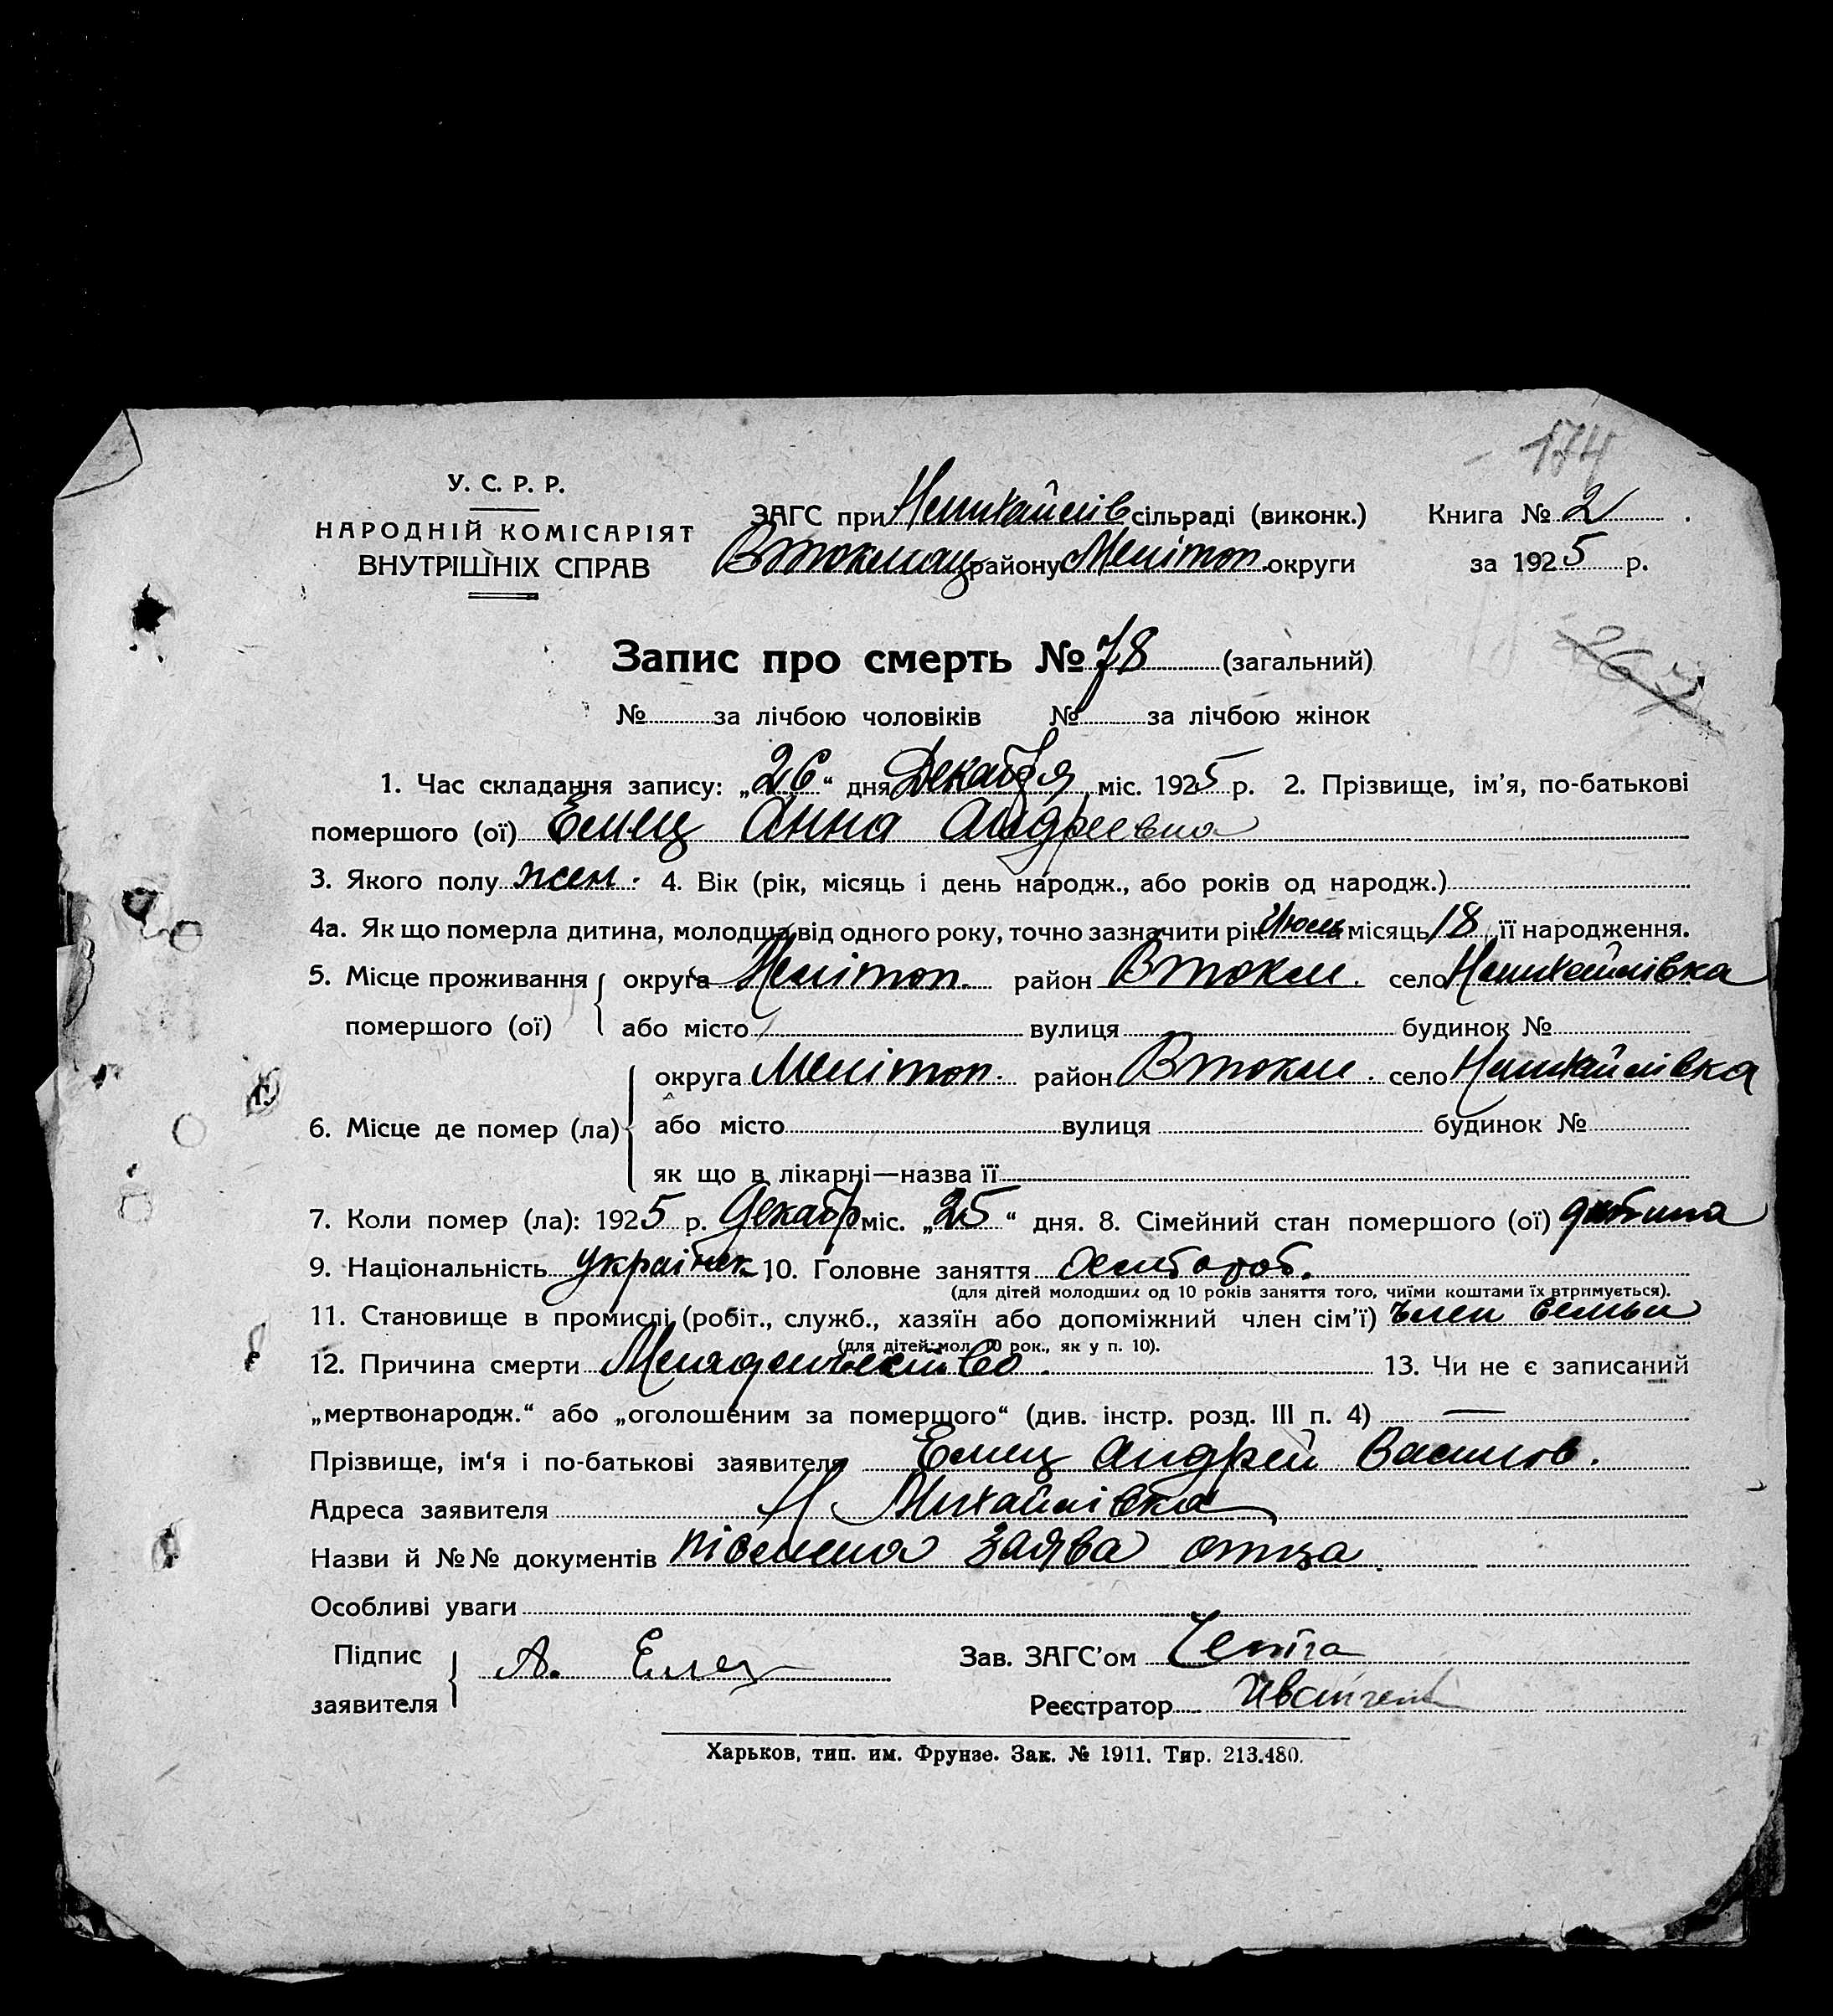 174
У. С. Р. Р.
НАРОДНІЙ КОМІСАРІЯТ
ВНУТРІШНІХ СПРАВ
ЗАГС при Немихайлів сільраді (виконк.) Книга № 2
Втокмац району Мелітоп. округи за 1925 р.
Запис про смерть № 78 (загальний)
№ за лічбою чоловіків № за лічбою жінок
1. Час складання запису: „26“ дня Декабря міс. 1925 р. 2. Прізвище, ім'я, по-батькові
помершого (ої) Емец Анна Андреевна
3. Якого полу жен. 4. Вік (рік, місяць і день народж., або років од народж.)
4а. Як що померла дитина, молодша від одного року, точно зазначити рік Июль місяць 18 її народження.
5. Місце проживання округа Мелітоп. район Втокм. село Немихайлівка
помершого (ої) або місто вулиця будинок №
округа Мелітоп. район Втокм. село Немихайлівка
6. Місце де помер (ла) або місто вулиця будинок №
як що в лікарні—назва її
7. Коли помер (ла): 1925 р. Декабр міс. „25“ дня. 8. Сімейний стан помершого (ої) дитина
9. Національність 10. Головне заняття
(для дітей молодших од 10 років заняття того, чиїми коштами їх втримується).
11. Становище в промислі (робіт., служб., хазяїн або допоміжний член сім'ї) член семьи
(для дітей мол. 10 рок., як у п. 10).
12. Причина смерти Младенчество. 13. Чи не є записаний
„мертвонародж.“ або „оголошеним за помершого“ (див. інстр. розд. III п. 4) —
Прізвище, ім'я і по-батькові заявителя Емец Андрей Васильов.
Адреса заявителя Н Михайлівка
Назви й №№ документів пісьмена заява отца.
Особливі уваги
Підпис А. Емец Зав. ЗАГС'ом
заявителя Реєстратор
Харьков, тип. им. Фрунзе. Зак. № 1911. Тир. 213.480.